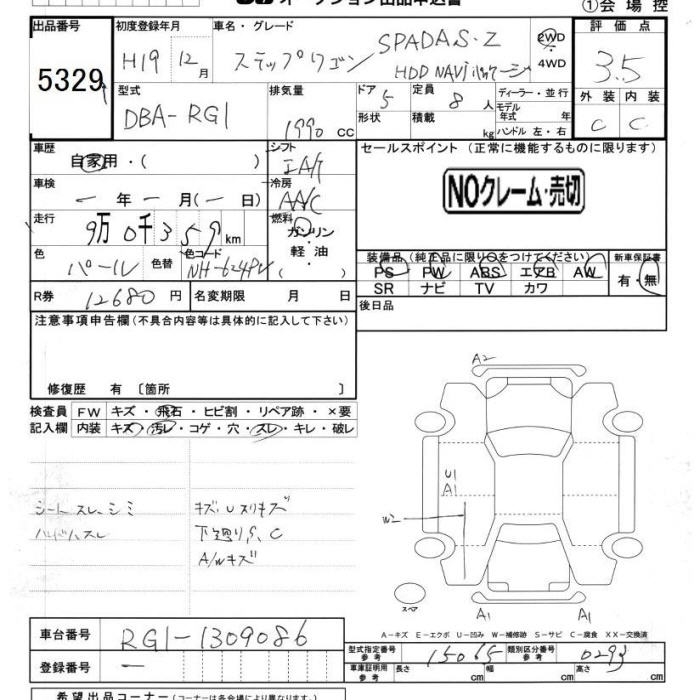 ①会場控
出品番号
5329
初度登録年月
H19 12月
車名・グレード
ステップワゴン
SPADA S・Z
HDD NAVIパッケージ
2WD
・
4WD
評価点
3.5
型式
DBA-RG1
排気量
1990 cc
ドア 5
形状
定員 8 人
積載 kg
ディーラー・並行
モデル年式 年
ハンドル 左・右
外装 内装
C C
車歴
自家用・( )
シフト
IAT
セールスポイント (正常に機能するものに限ります)
NOクレーム・売切
車検
一年一月(一日)
冷房
AAC
走行
9万0千359km
燃料
ガソリン
・
軽油
・
( )
色
パール
色替
色コード
NH-624PV
装備品 (純正品に限り○をつけてください)
PS PW ABS エアB AW
SR ナビ TV カワ
新車保証書
有・無
R券 12680 円
名変期限 月 日
後日品
注意事項申告欄 (不具合内容等は具体的に記入して下さい)
修復歴 有 [箇所 ]
検査員
記入欄
FW キズ・飛石・ヒビ割・リペア跡・×要
内装 キズ・汚レ・コゲ・穴・スレ・キレ・破レ
シートスレ、シミ
ハンドルスレ
キズ、Uスリキズ
下廻りS、C
A/Wキズ
A2
U1
A1
W2
スペア
A1
A1
A-キズ E-エクボ U-凹み W-補修跡 S-サビ C-腐食 XX-交換済
車台番号
RG1-1309086
登録番号
一
型式指定番号
参考
15065
類別区分番号
参考
0293
車庫証明用
参考
長さ 幅 高さ
希望出品コーナー (コーナーは各会場により異なります)